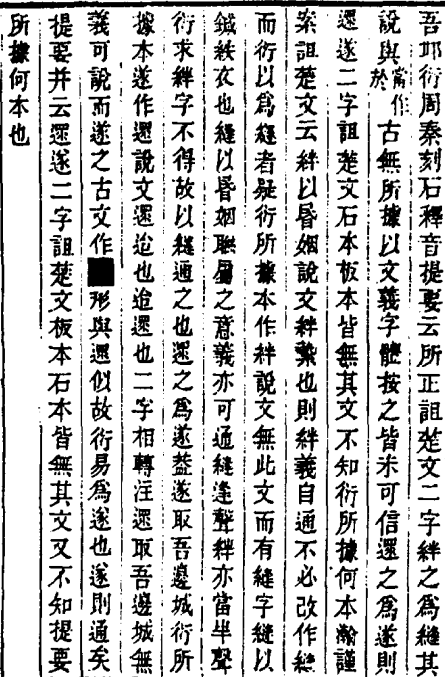 吾邱衍周秦刻石釋音提要云所正詛楚文二字絆之為縫其
說與當作於古無所據以文義字體按之皆未可信遝之為遂則
遝遂二字詛楚文石本板本皆無其文不知衍所據何本瀚謹
案詛楚文云絆以昏姻說文絆縶也則絆義自通不必改作縫
而衍以為縫者疑衍所據本作絆說文無此文而有縫字縫以
鍼紩衣也縫以昏姻聯屬之意義亦可通縫逢聲絆亦當半聲
衍求絆字不得故以縫通之也遝之為遂葢遂取吾邊城衍所
據本遂作遝說文遝迨也迨遝也二字相轉注遝取吾邊城無
義可說而遂之古文作 形與遝似故衍易為遂也遂則通矣
提要并云遝遂二字詛楚文板本石本皆無其文又不知提要
所據何本也